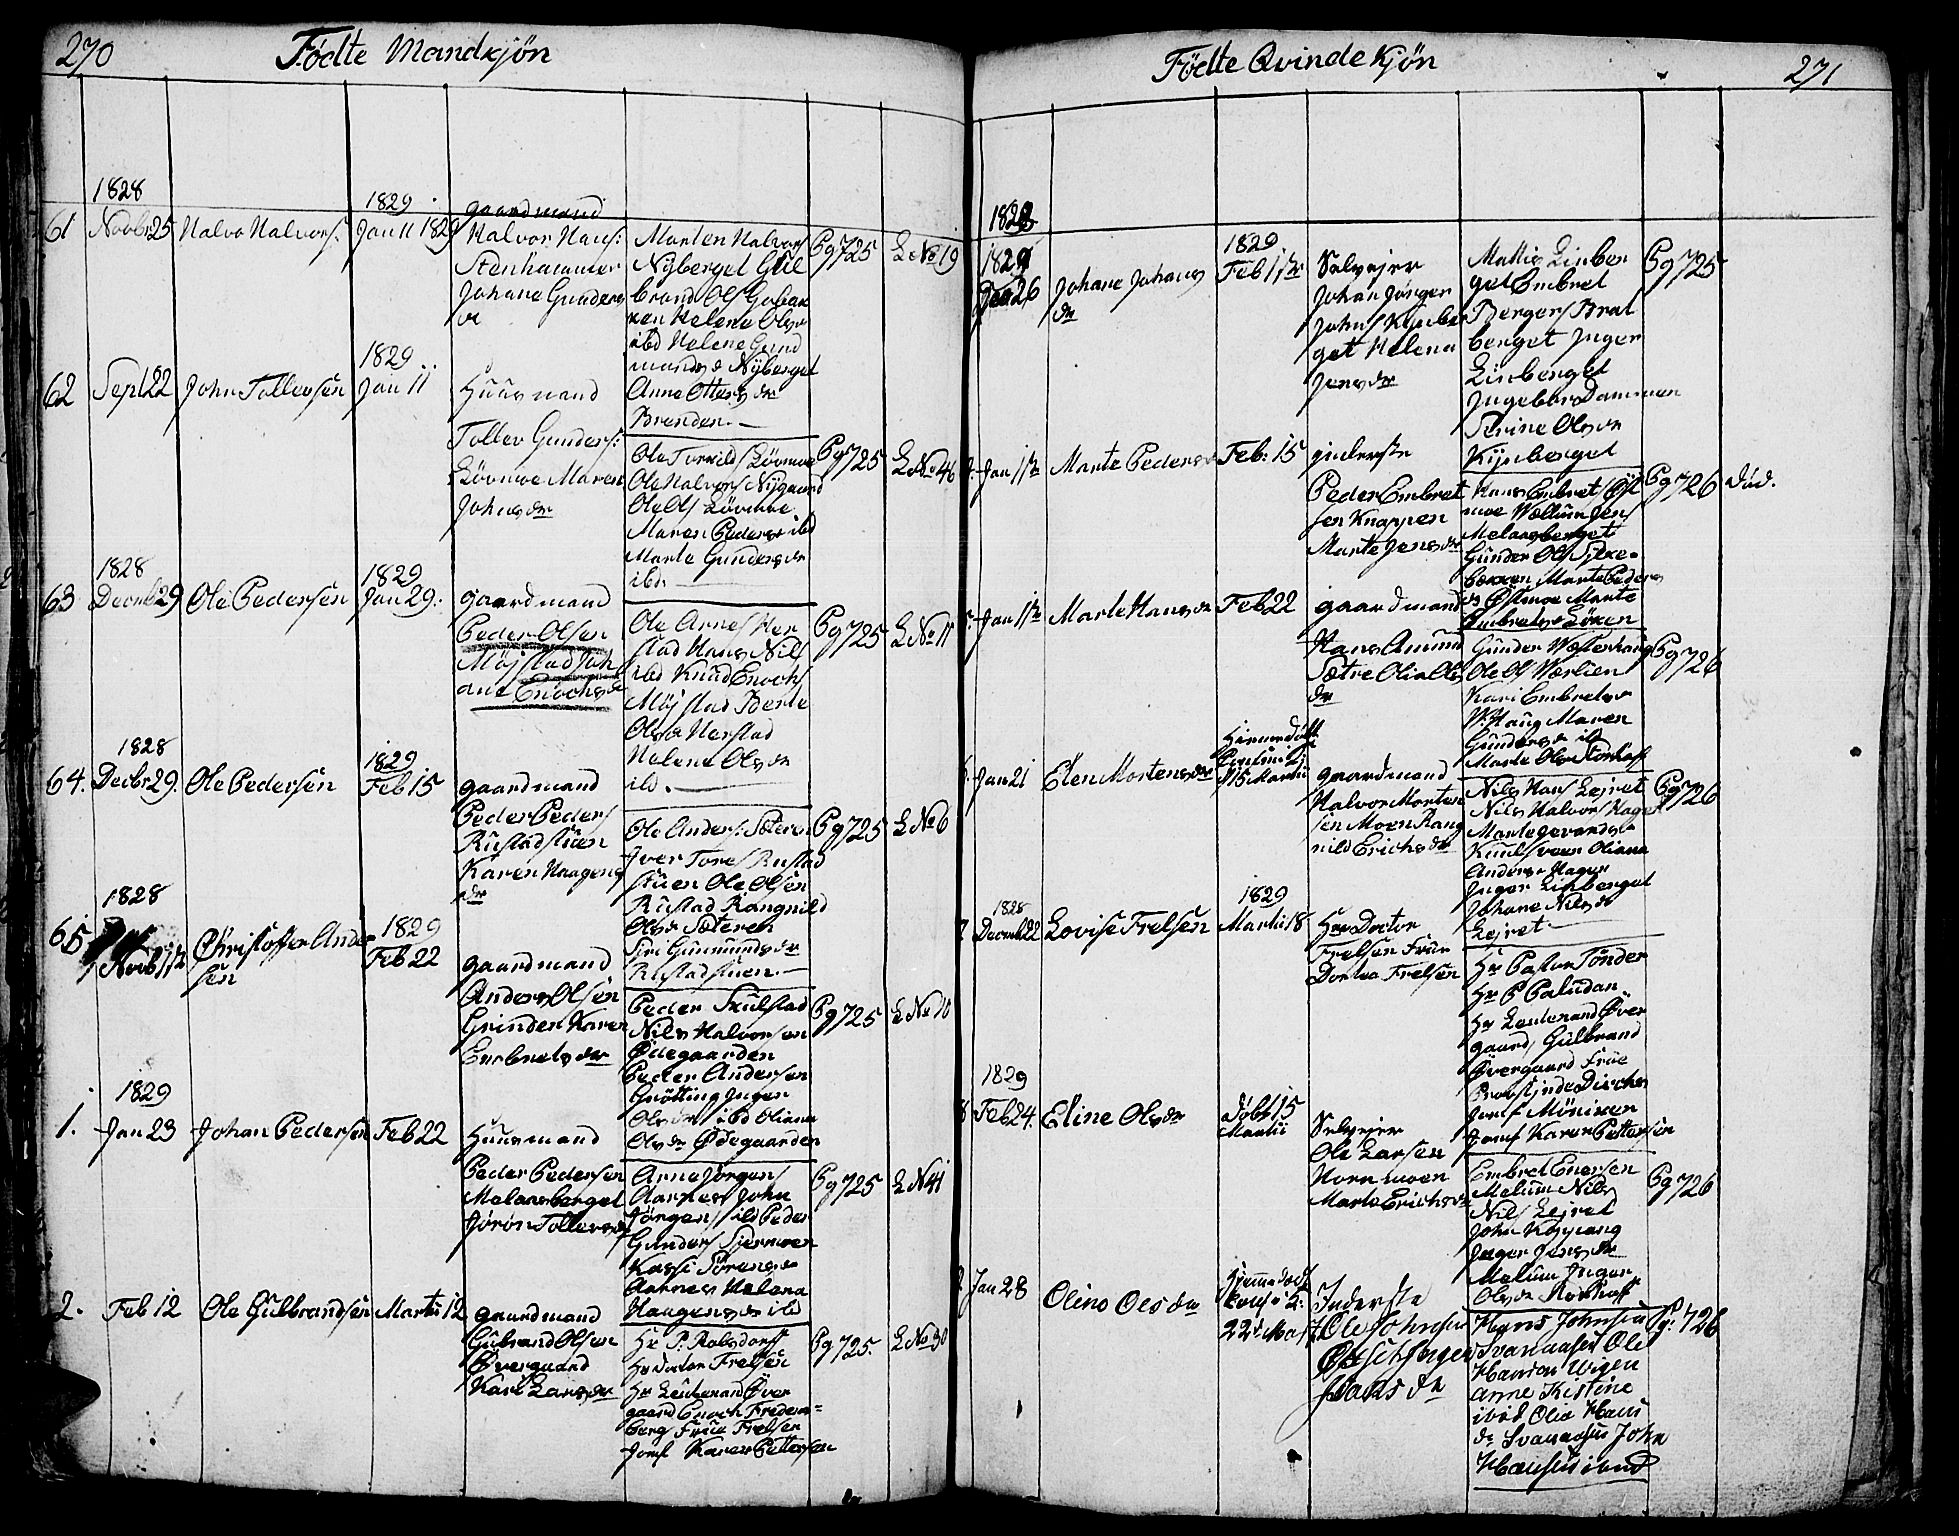 270
Fødte Mandkjøn
1828
61 Novbr 25 Halvo Halvors:
1829
Jan 11 1829
gaardmand
Halvor Hans:
Stenhammer
Johane Gunders
dr
Marten Halvors
Nyberget Gul
brand Ols
Helene Olsdr
ibd Helene Gund
mandsdr Nyberget
Anne Ottersdr
Brenden.
Pg 725
L No 19
62 Sept 22 John Tollevsen
1829
Jan 11
Huusmand
Tollev Gunders:
Løvmoe Maren
Johnsdr
Ole Torkilds Løvmoe
Ole Halvors Nygaard
Ole Ols Løvmoe
Maren Pedersdr ibd
Marte Gundersdr
ibd.
Pg 725
L No 46
1828
63 Decmb 29 Ole Pedersen
1829
Jan 29.
gaardmand
Peder Olsen
Møjstad Joh
ane Enochsdr
Ole Arnes Her
stad Hans Nils
ibd Knud Enochs
Møjstad Berte
Olsdr Herstad
Helene Olsdr
ibd.
Pg 725
L No 11
1828
64. Decbr 29. Ole Pedersen
1829
Feb 15
gaardmand
Peder Peders
Rustadstuen
Karen Haagens
dr
Ole Anders: Sæteren
Iver Tores Rustad
stuen Ole Olsen
Rustad Rangnild
Olsdr Sæteren
Siri Gunmundsdr
Rustadstuen.
Pg 725
L No 6
1828
65 Novb 11te Christoffer Ander
sen
1829
Feb 22
gaardmand
Anders Olsen
Grinder Karen
Embretsdr
Peder Skulstad
Nils Halvorsen
Ødegaarden
Peder Andersen
Grøtting Inger
Olsdr ibd Oliana
Olsdr Ødegaarden
Pg 725
L No 10
1829
1. Jan 23 Johan Pedersen Feb 22
Huusmand
Peder Pedersen
Melaasberget
Jørøn Tollevsdr
Arne Jørgens
Aarnes John
Jørgens ibd Peder
Gunders Stermoen
Kassi Sørensdr
Aarnes Helena
Haagensdr ibd
Pg 725
L N 41
2. Feb 12 Ole Gulbrandsen Martii 12
gaardmand
Gulbrand Olsen
Øvergaard
Kari Larsdr
Hr P. Rolsdorff
Hr Doctor Frelsen
Hr Leutenand Øver
gaard Enoch Fredens=
berg Frue Frelsen
Jomf Karen Pettersen
Pg 725.
L No 30
Fødte Qvinde Kjøn
271
1829
1829
Jan 26
Johane Johans
dr
1829
Feb 1ste
Selvejer
Johan Jørgen
Johns Kynber
get Helena
Jensdr
Mattis Linber
get Embret
Bergers Brat
berget Inger
Linberget
Ingebor Dammen
Serine Olsdr
Kynberget
Pg 725
Jan 11te Marte Pedersdr Feb: 15
inderste
Peder Embret
sen Knappen
Marte Jensdr
Hans Embrets Øst
moe Wællum Jens
Melaasberget
Gunder Ols
bækken Marte Peders
dr Østmoe Marte
Embretsdr Løken
Pg 726
død.
Jan 11te Marte Hansdr Feb 22
gaardmand
Hans Amund
Sætre Olia Ols
dr
Gunder Westerhaug
Ole Ols Wærlien
Kari Embretsdr
W.Haug Maren
Gundersdr ibd
Marte Olsdr
Pg 726
Jan 21 Elen Mortensdr
Hiemmedøbt
15 Martii
gaardmand
Halvor Morten
sen Moen Rang
nild Erichsdr
Nils Hans Lejret
Nils Halvors Hagen
Marte
Oliana
Andersdr Hagen
Inger Linberget
Johane Nilsdr
Lejret
Pg 726
1828
7 Decmb 22 Lovise Frelsen
1829
Martii 18
Hr Doctor
Frelsen Frue
Dortea Frelsen
Hr Pastor Tønder
Hr P Paludan
Hr Leutenand Øver
gaard, Gulbrand
Øvergaard Frue
Jomf Møniken
Jomf Karen Pettersen
1829
8 Feb 24. Eline Olsdr
Døbt 15
Martii
Selvejer
Ole Larsen
Hornmoen
Marte Erichsdr
Embret Enersen
Melum Nils
Nils Lejret
John Koppang
Inger Jensdr
Melum Inger
Olsdr
Pg 726
Jan 28 Olino Olsdr
Hjemmedøbt
22d Mart
Inderste
Ole Johnsen
Hansdr
Hans Johnsen
Svanaasen Ole
Hansen Wigen
Anne Kistine
ibid Olia Hans
dr Svanaasen John
Hansen ibid
Pg: 726